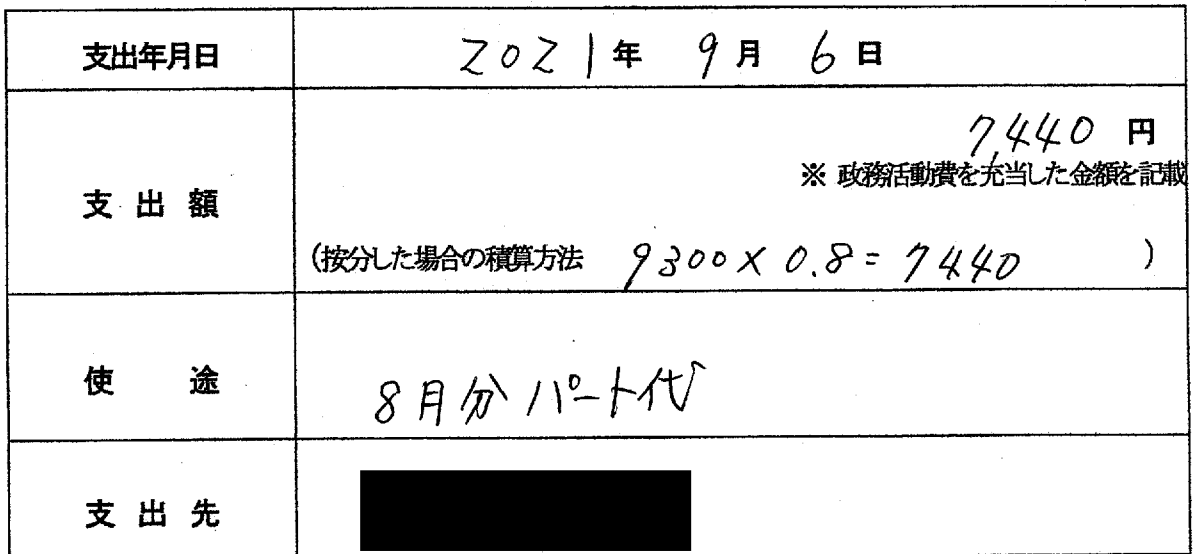 支出年月日 2021年 9月 6日
7,440 円
※ 政務活動費を充当した金額を記載
支出額
(按分した場合の積算方法 9300×0.8=7440 )
使途 8月分パート代
支出先